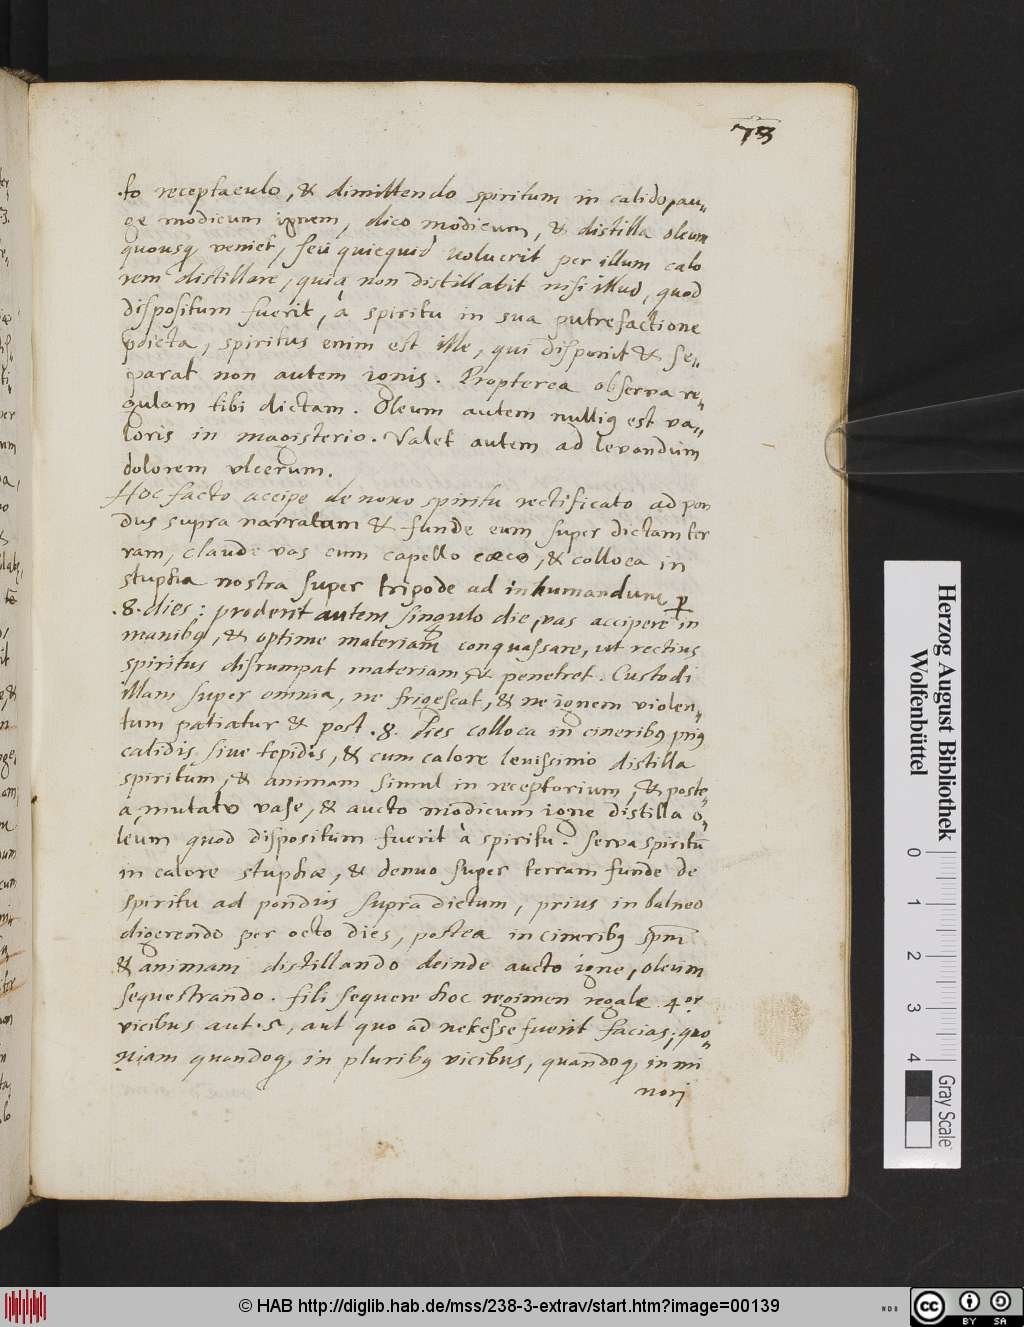 73
to receptaculo, & dimittendo spiritum in calido, au„
ge modicum ignem, dico modicum, & distilla oleum
quousq, veniet, seu quicquid voluerit per illum calo
rem distillare, quia non distillabit nisi illud, quod
dispositum fuerit, à spiritu in sua putrefactione
pdicta, spiritus enim est ille, qui disponit & se„
parat non autem ignis. Propterea observa re„
gulam tibi dictam. Oleum autem nulliq est va„
loris in magisterio. Valet autem ad levandum
dolorem ulcerum.
Hoc facto accipe de novo spiritu rectificato ad pon
dus supra narratum & funde eum super dictam ter
ram, claude vas cum capello cœco, & colloca in
stupha nostra super tripode ad inhumandum p
.8. dies: proderit autem singulo die, vas accipere in
manibq, & optime materiam conquassare, ut rectius
spiritus disrumpat materiam & penetret. Custodi
illam super omnia, ne frigescat, & ne ignem violen„
tum patiatur & post .8. dies colloca in cineribq priq
calidis sive tepidis, & cum calore levissimo distilla
spiritum, & animam simul in receptorium, & poste„
a, mutato vase, & aucto modicum igne distilla o„
leum quod dispositum fuerit à spiritu. Serva spiritū
in calore stuphæ, & denuo super terram funde de
spiritu ad pondus supra dictum, prius in balneo
digerendo per octo dies, postea in cineribq spm̄
& animam distillando deinde aucto igne, oleum
sequestrando. Fili sequere hoc regimen regale 4.or
vicibus aut .5, aut quo ad nekesse fuerit facias; quo„
niam quandoq, in pluribq vicibus, quandoq, in mi
nori
Herzog August Bibliothek
Wolfenbüttel
0 1 2 3 4
Gray Scale
© HAB http://diglib.hab.de/mss/238-3-extrav/start.htm?image=00139
cc BY SA